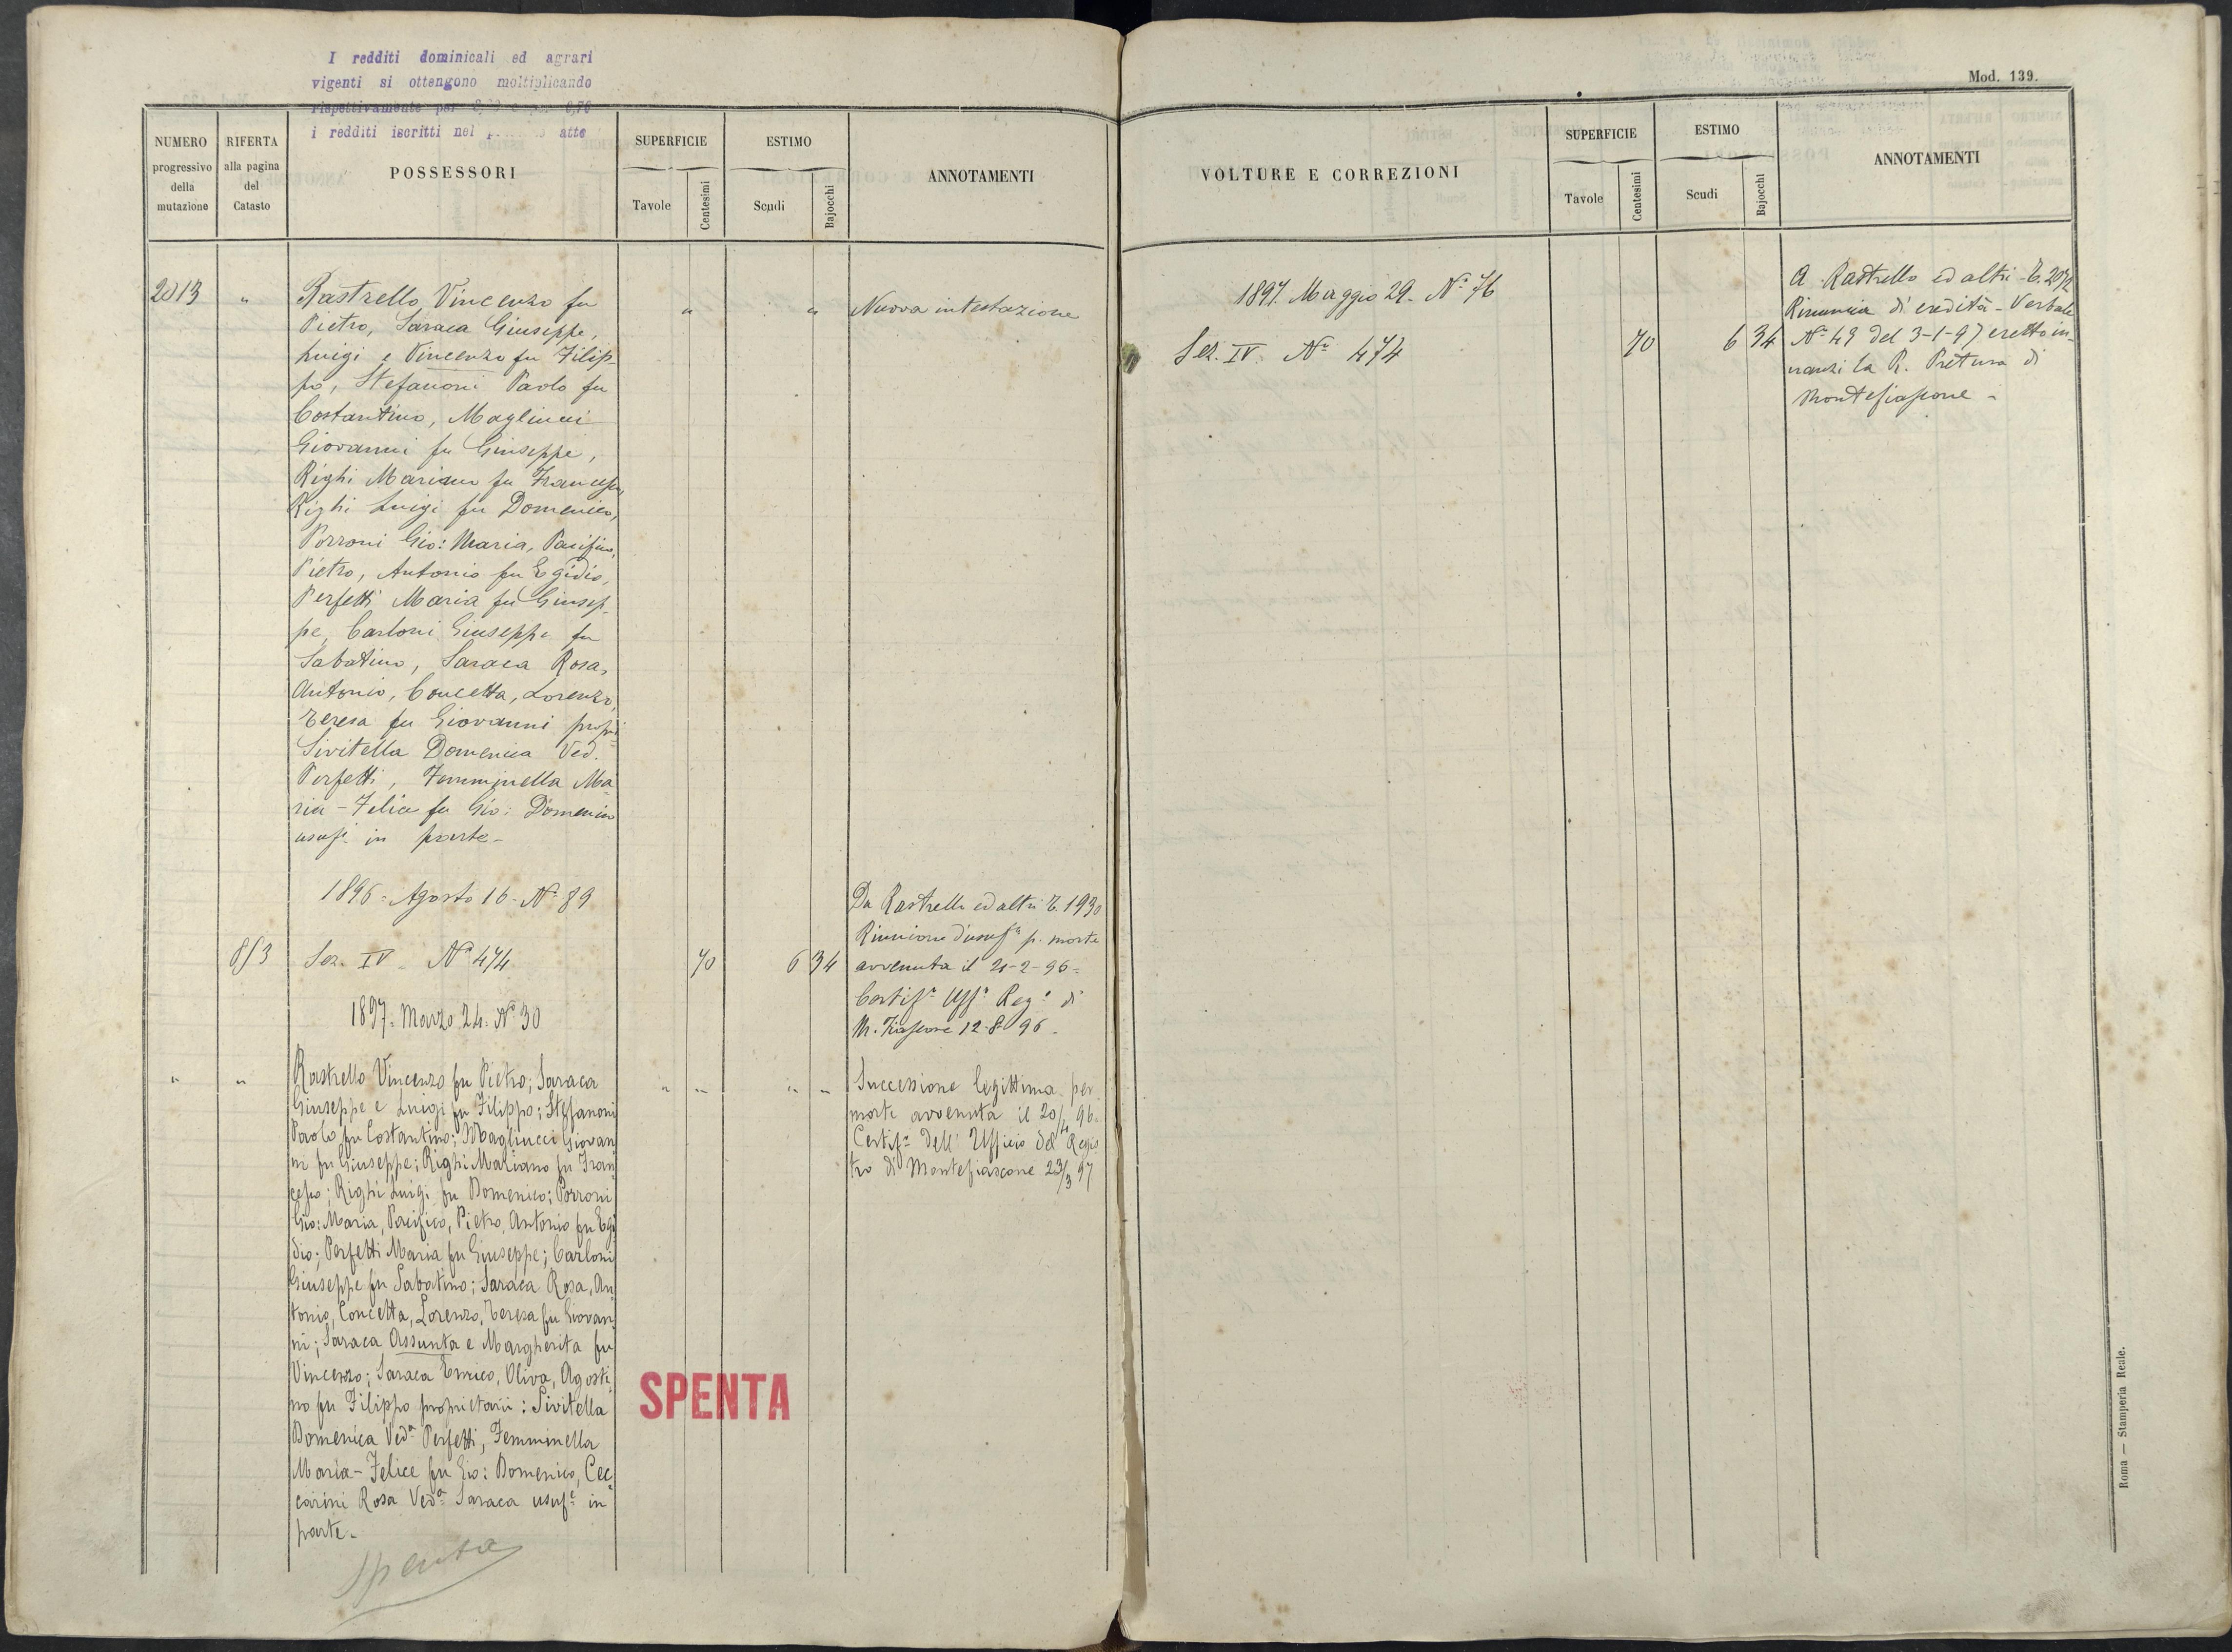 I redditi dominicali ed agrari
vigenti si ottengono moltiplicando
rispettivamente per
i redditi iscritti nel atto
NUMERO
progressivo
della
mutazione
RIFERTA
alla pagina
del
Catasto
POSSESSORI
SUPERFICIE
Tavole
Centesimi
ESTIMO
Scudi
Bajocchi
ANNOTAMENTI
2013 " Rastrello Vincenzo fu " " Nuova intestazione
Pietro, Saraca Giuseppe,
Luigi e Vincenzo fu Filip-
po, Stefanoni Paolo fu
Costantino, Magliucci
Giovanni fu Giuseppe,
Righi Mariano fu Francesco,
Righi Luigi fu Domenico,
Porroni Gio: Maria, Pacifico,
Pietro, Antonio fu Egidio,
Perfetti Maria fu Giusep-
pe, Carloni Giuseppe fu
Sabatino, Saraca Rosa,
Antonio, Concetta, Lorenzo,
Teresa fu Giovanni propri
Sivitella Domenica Ved.
Perfetti, Femminella Ma
ria - Felice fu Gio: Domenico
usuf. in parte -
1896 = Agosto 16 - Nº 89
Da Rastrello ed altri T. 1930
Riunione d'usufº p. morte
813 Sez. IV. Nº 474 70 6 34 avvenuta il 21-2-96 =
Certifº Uffº Regº di
M. Fiascone 12-8-96 -
1897. Marzo 24. Nº 30
" " Rastrello Vincenzo fu Pietro; Saraca " " " " Successione legittima per
Giuseppe e Luigi fu Filippo; Stefanoni morte avvenuta il 20/ 96.
Paolo fu Costantino; Magliucci Giovan Certifº dell' Ufficio del Regis
ni fu Giuseppe; Righi Mariano fu Fran tro di Montefiascone 23/3 97
cesco; Righi Luigi fu Domenico; Porroni
Gio: Maria, Pacifico, Pietro, Antonio fu Egi
dio; Perfetti Maria fu Giuseppe; Carloni
Giuseppe fu Sabatino; Saraca Rosa, An
tonio, Concetta, Lorenzo, Teresa fu Giovan
ni; Saraca Assunta e Margherita fu
Vincenzo; Saraca Enrico, Oliva, Agosti
no fu Filippo proprietarii: Sivitella
Domenica Vedª Perfetti, Femminella
Maria - Felice fu Gio: Domenico, Cec
carini Rosa Vedª Saraca usufº in
parte -
SPENTA
Spenta
Mod. 139.
VOLTURE E CORREZIONI
SUPERFICIE
Tavole
Centesimi
ESTIMO
Scudi
Bajocchi
ANNOTAMENTI
1897. Maggio 29 - Nº 76
A Rastrello ed altri - T. 2072
Rinuncia di eredità - Verbale
Sez. IV. Nº 474 70 6 34 Nº 49 del 3-1-97 eretto in-
nanzi la R. Pretura di
Montefiascone -
Roma — Stamperia Reale.